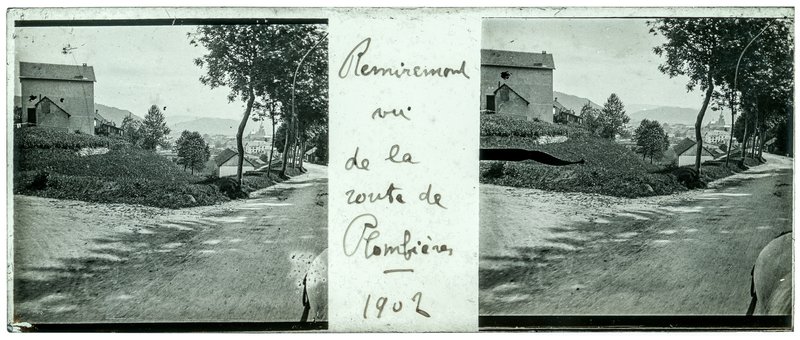 Remiremont
vu
de la
route de
Plombières
1902